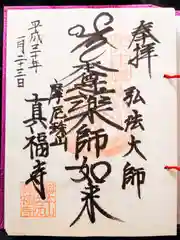 奉拝
弘法大師
尊薬師如来
摩尼珠山
真福寺
平成三十年
一月二十三日